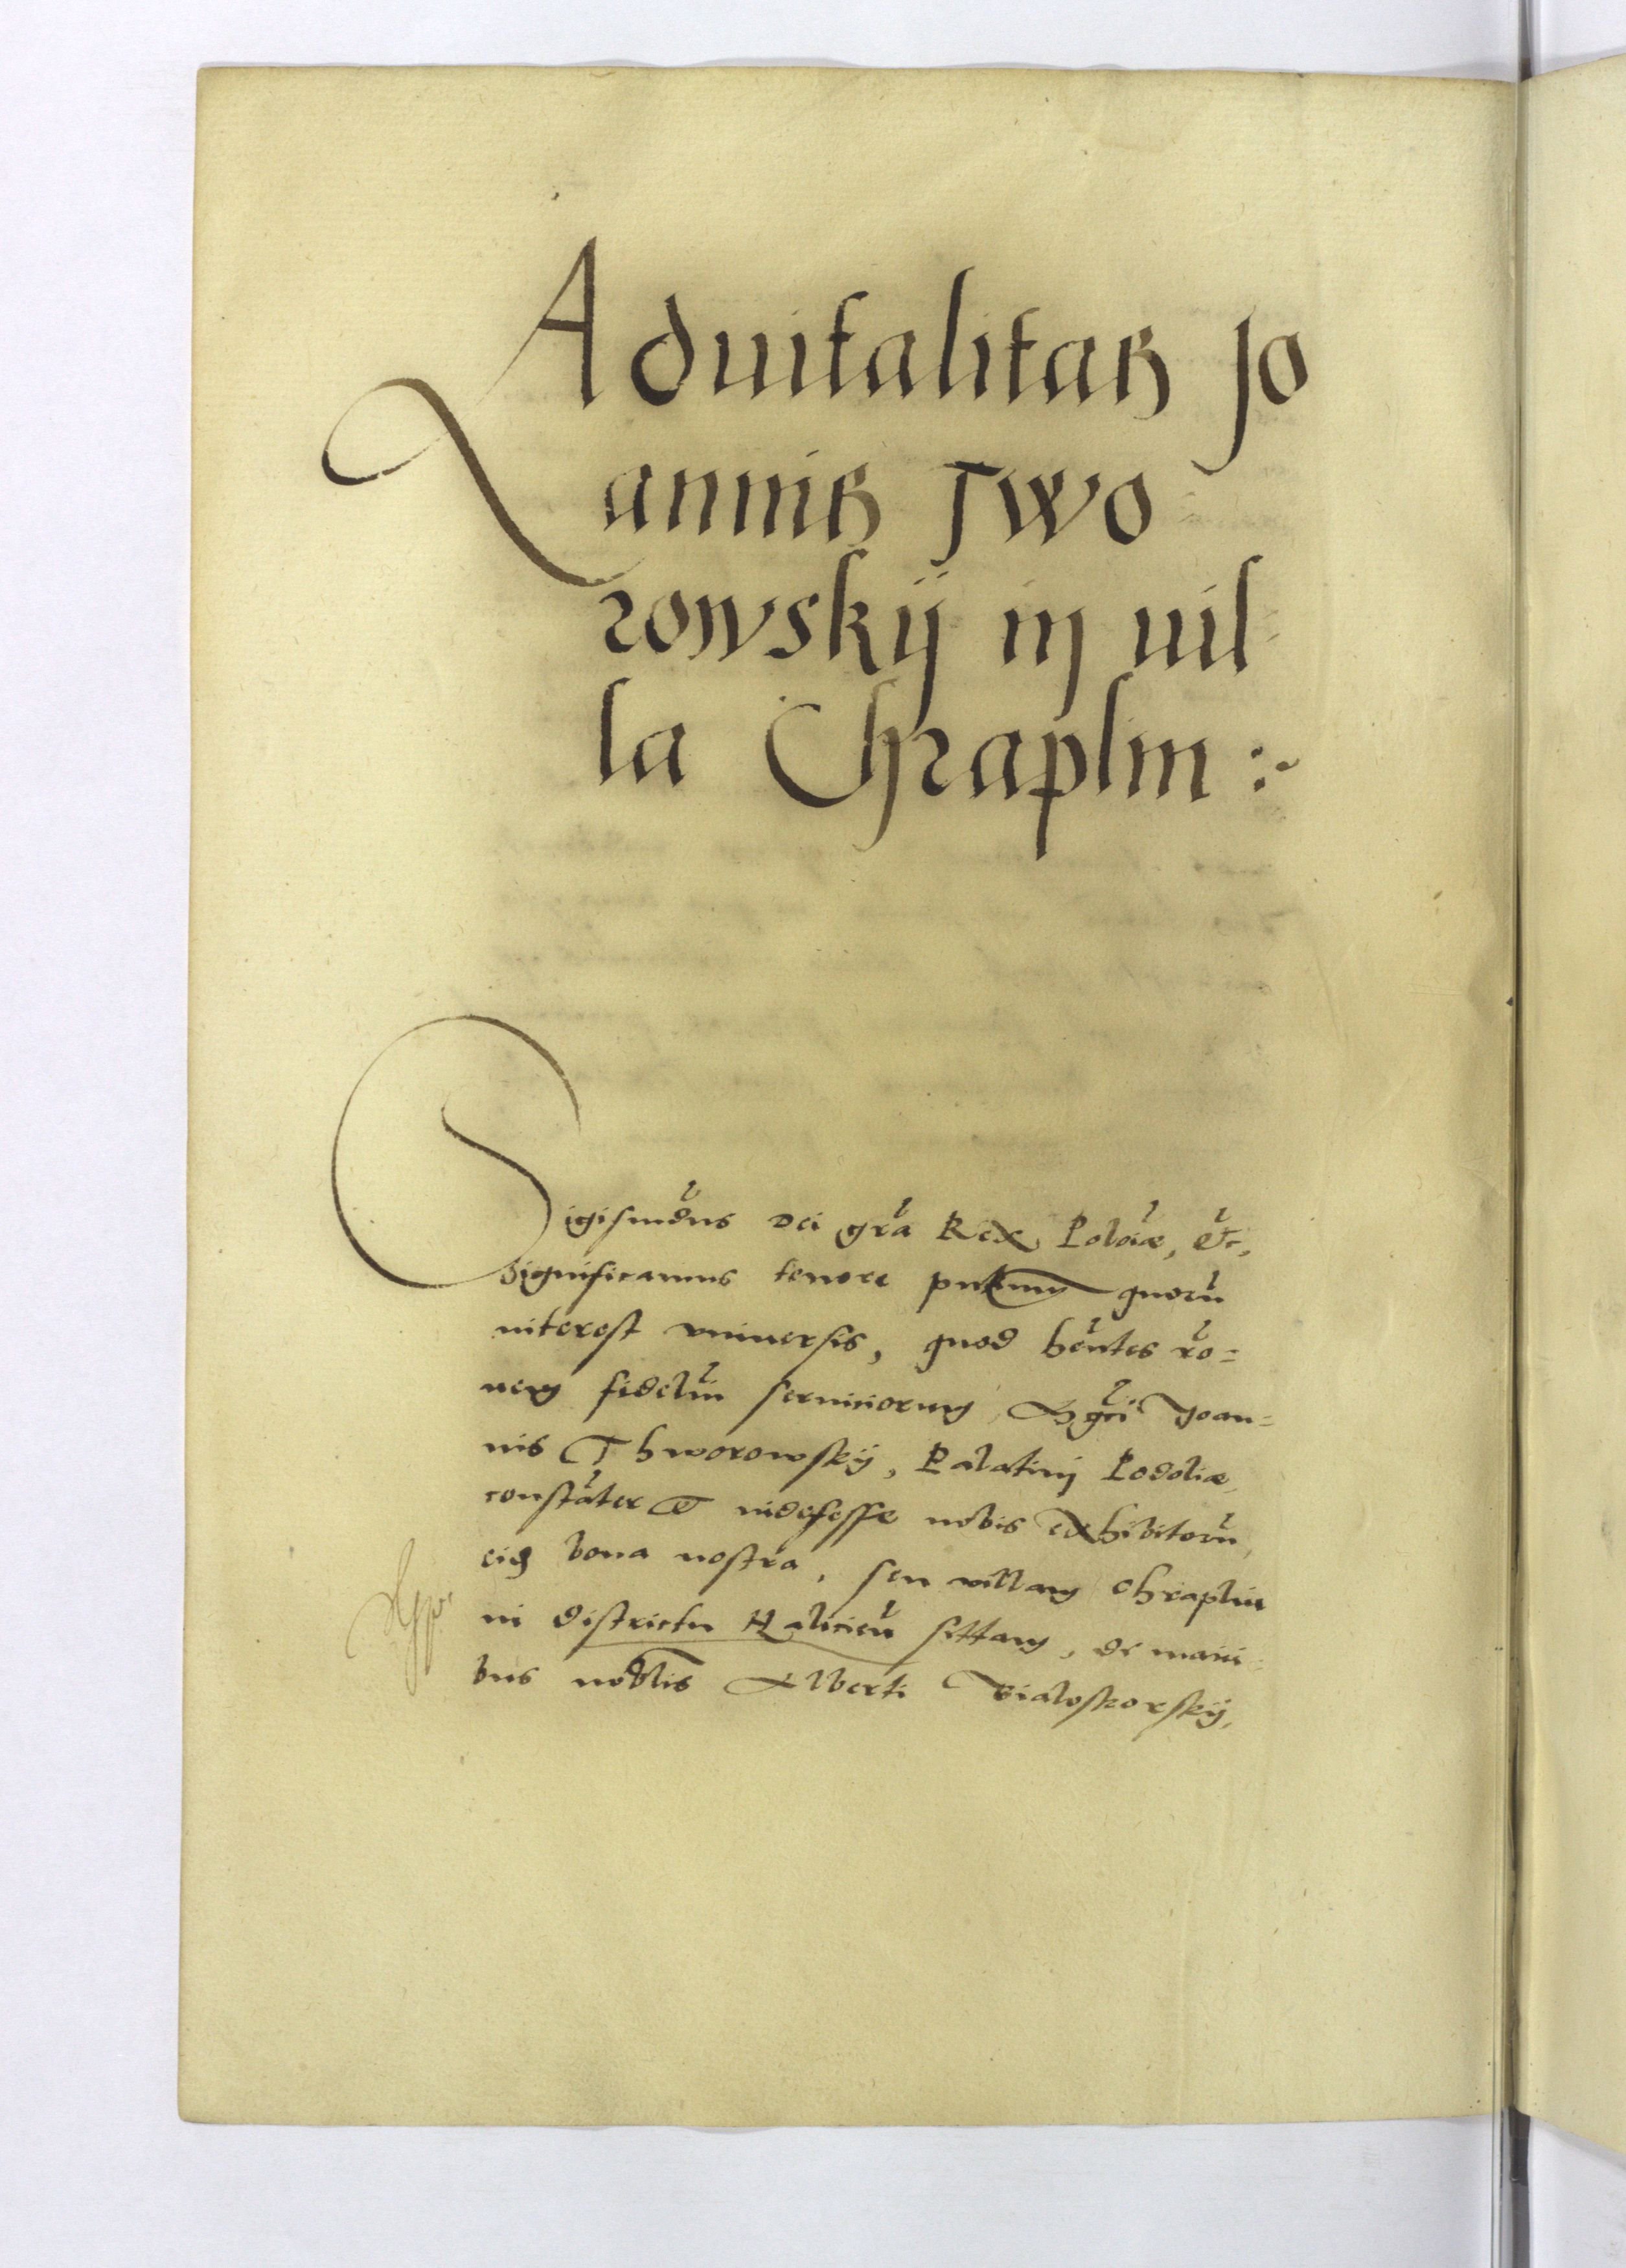 Aduitalitas Jo
annis Two
rowskÿ in uil
la Chraplin :~
Sigismũdus Dei grã Rex Polõiæ, &c,
Significamus tenore pñtium quorũ
interest vniuersis, quod hẽntes rõ=
nem fideliũ seruiciorum, Mgci Joan=
nis Thworowskÿ, Palatini Podoliæ,
constãter & indefesse nobis exhibitorũ,
eidem bona nostra, seu villam Chraplin
in districtu Haliciẽn sittam, de mani=
bus nobilis Alberti Bialoskorskÿ,